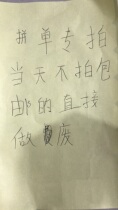 拼单专拍
当天不拍包
邮的直接
做废